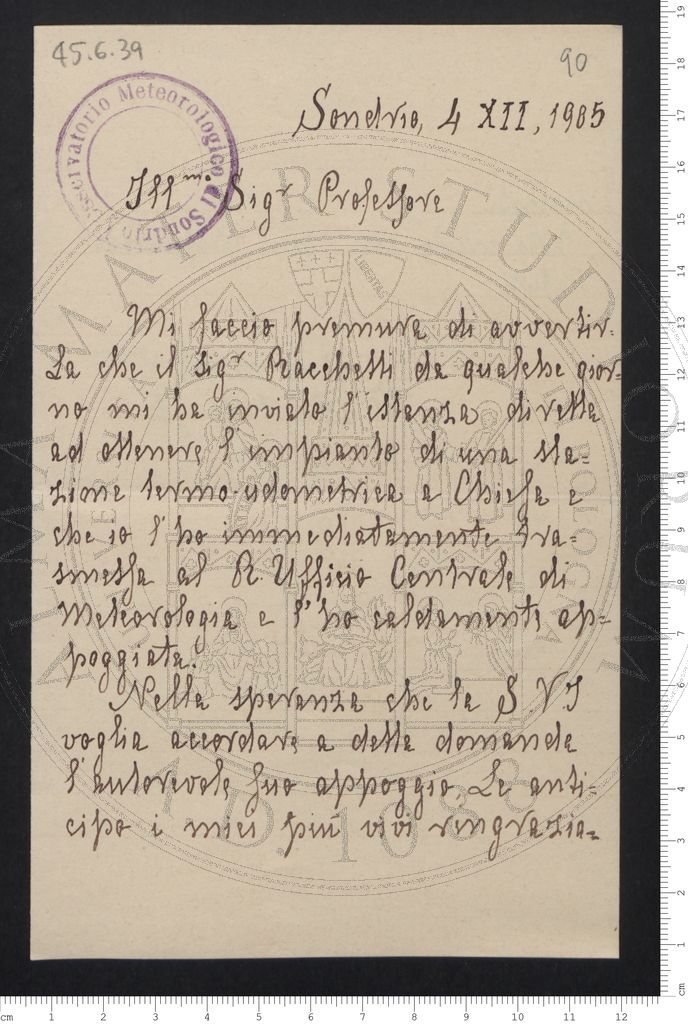 45.6.39
90
Osservatorio Meteorologico di Sondrio
Sondrio, 4 XII, 1905
Ill.mo Sigr Professore
Mi faccio premura di avvertir-
La che il Sigr Racchetti da qualche gior-
no mi ha inviato l'istanza diretta
ad ottenere l'impianto di una sta=
zione termo-udometrica a Chiesa e
che io l'ho immediatamente tra=
smessa al R. Ufficio Centrale di
Meteorologia e l'ho caldamente ap=
poggiata.
Nella speranza che la S V I
voglia accordare a detta domanda
l'autorevole suo appoggio, Le anti=
cipo i miei più vivi ringrazia=
ALMA MATER STUDIORUM
A.D. 1088
LIBERTAS